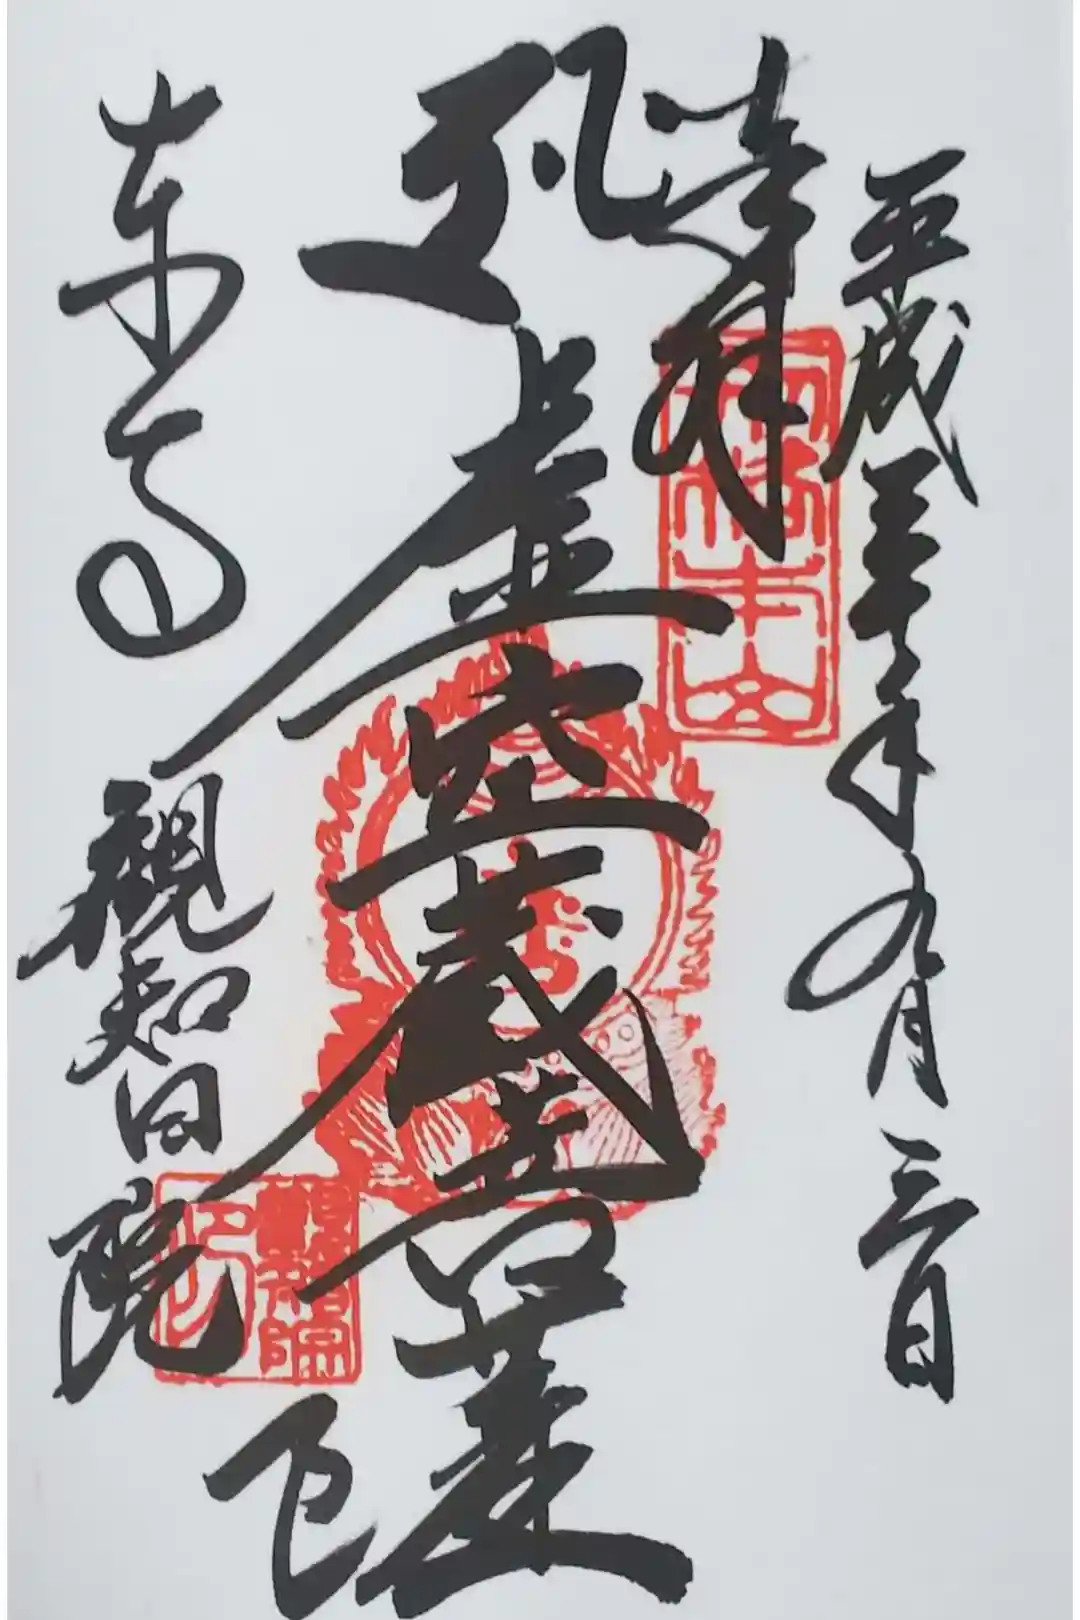 平成三十年九月三日
奉拝
虚空蔵菩薩
東寺
観智院
観智院印